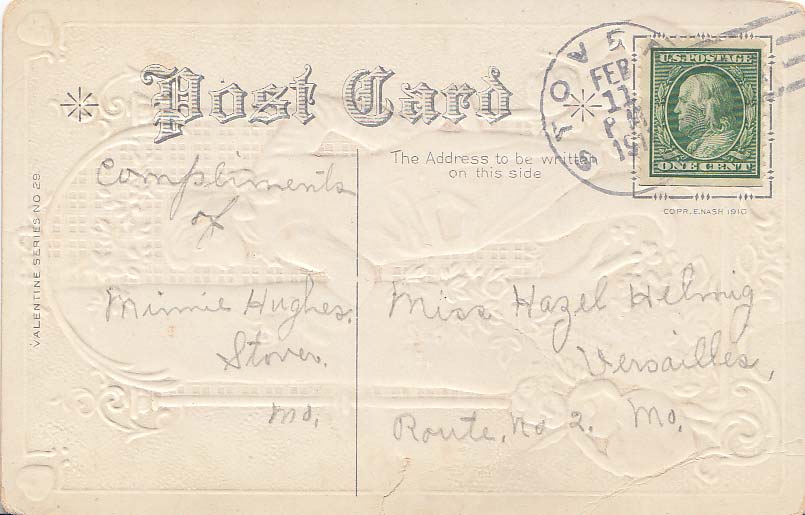 Post Card
The Address to be written
on this side
VALENTINE SERIES NO 29.
STOVE
FEB
11
P
U.S. POSTAGE
ONE CENT
COPR. E. NASH 1910
Compliments
of
Minnie Hughes.
Stover.
Mo.
Miss Hazel Helmig
Versailles,
Route, No 2. Mo.